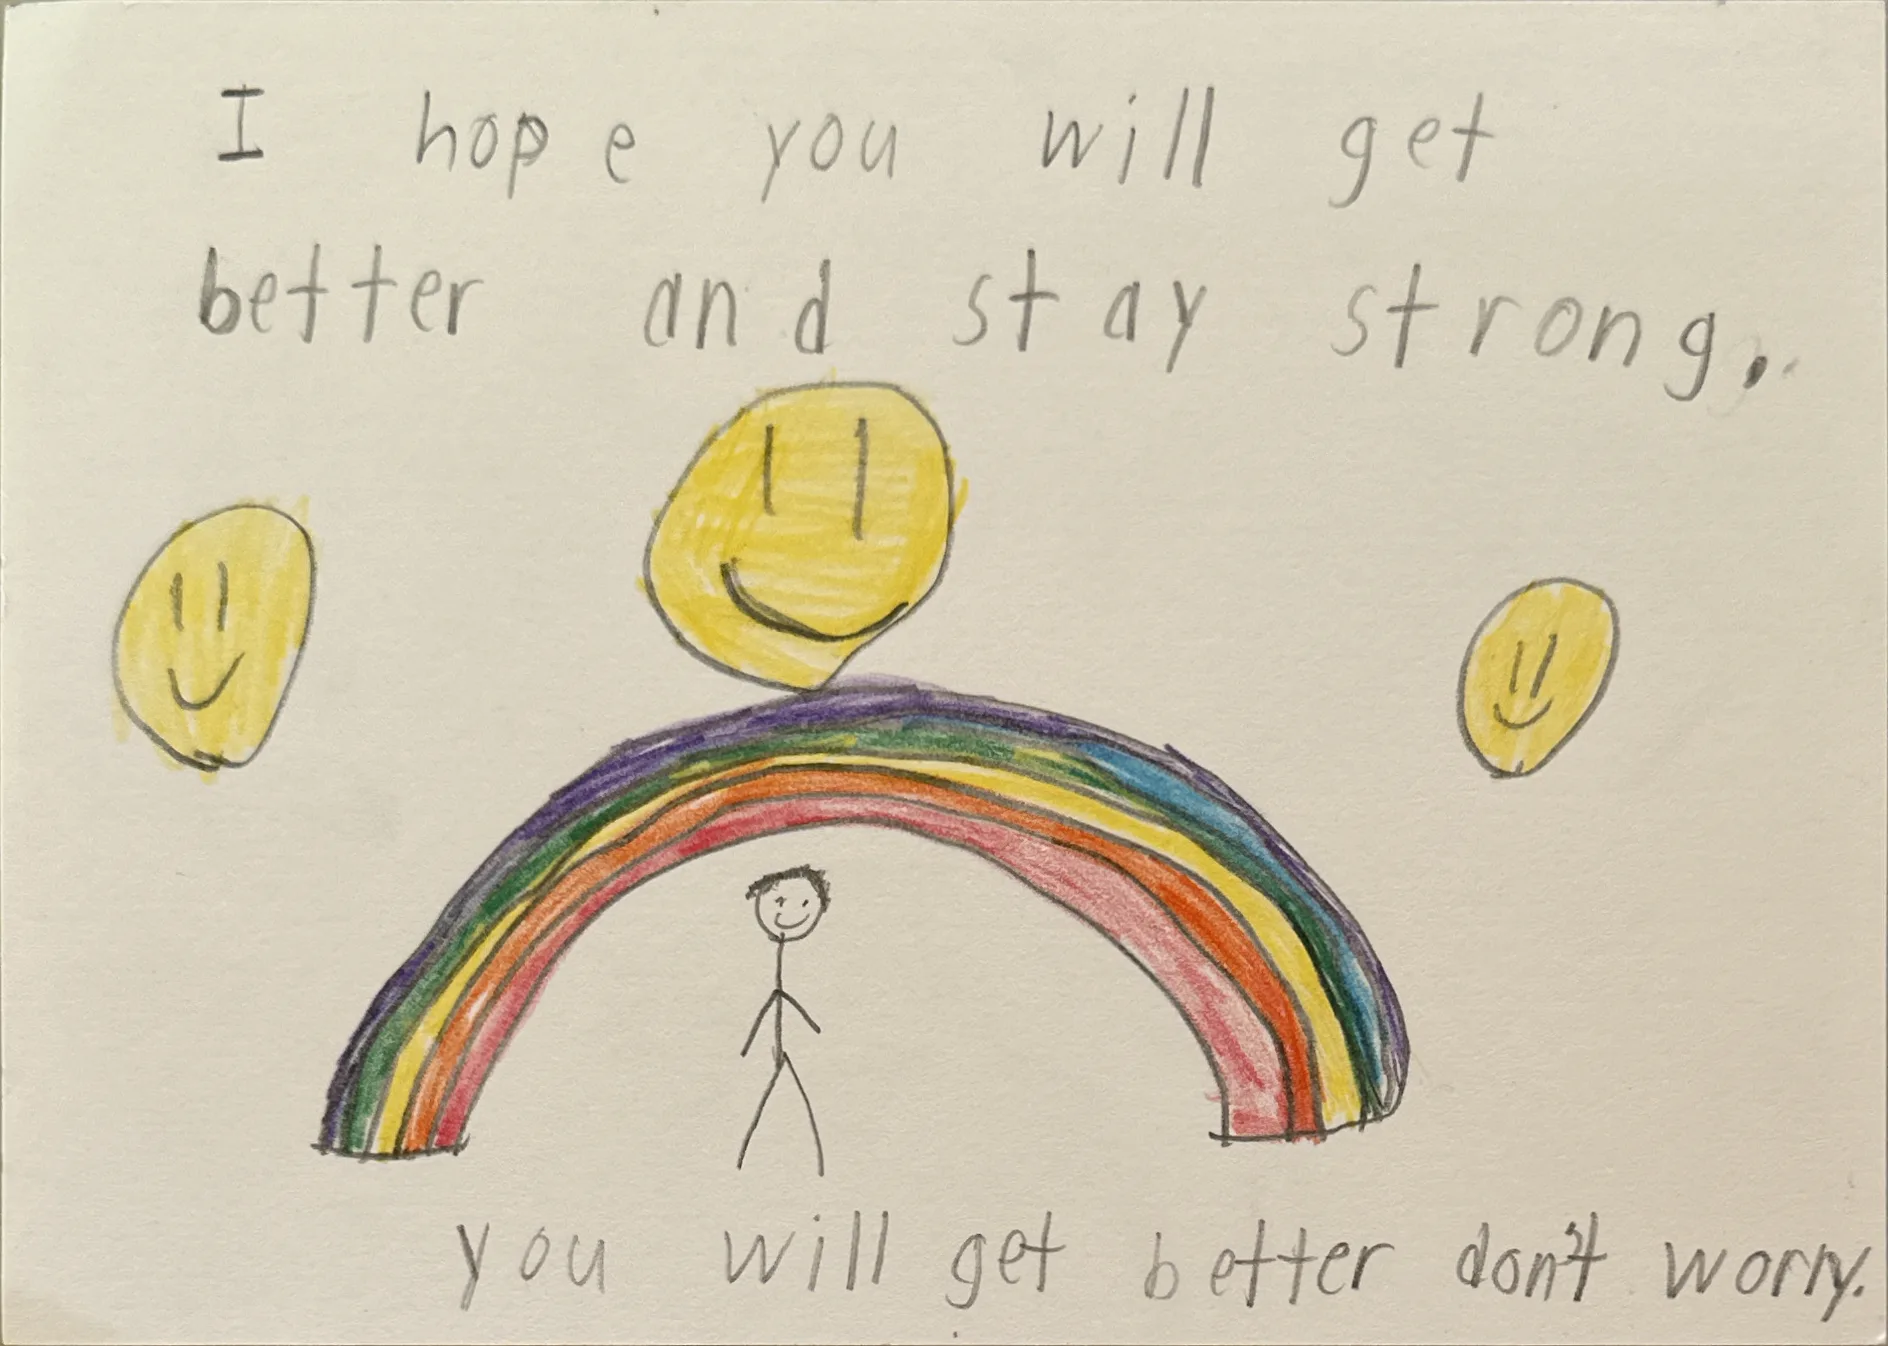 I hope you will get
better and stay strong.
you will get better don't worry.